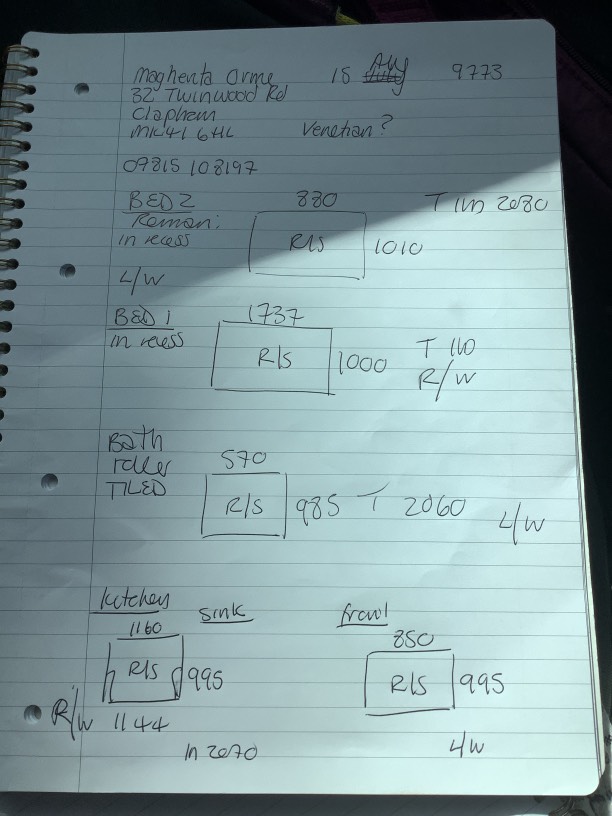 Maghenta Orme 15 Aug 9773
32 Twinwood Rd
Clapham
MK41 6HL Venetian?
09815 108197
BED 2 880 T 110 2080
Roman:
in recess R/S 1010
L/W
BED 1 1737
in recess R/S 1000 T 110
R/W
Bath 570
roller
TILED R/S 985 T 2060 L/W
kitchen sink front
1160 850
R/S 995 R/S 995
R/W 1144
2070 L/W